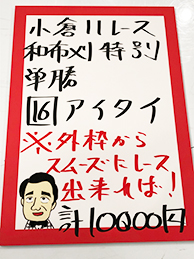 小倉11レース
和布刈特別
単勝
16アイタイ
※外枠から
スムーズにレース
出来れば！
計10000円